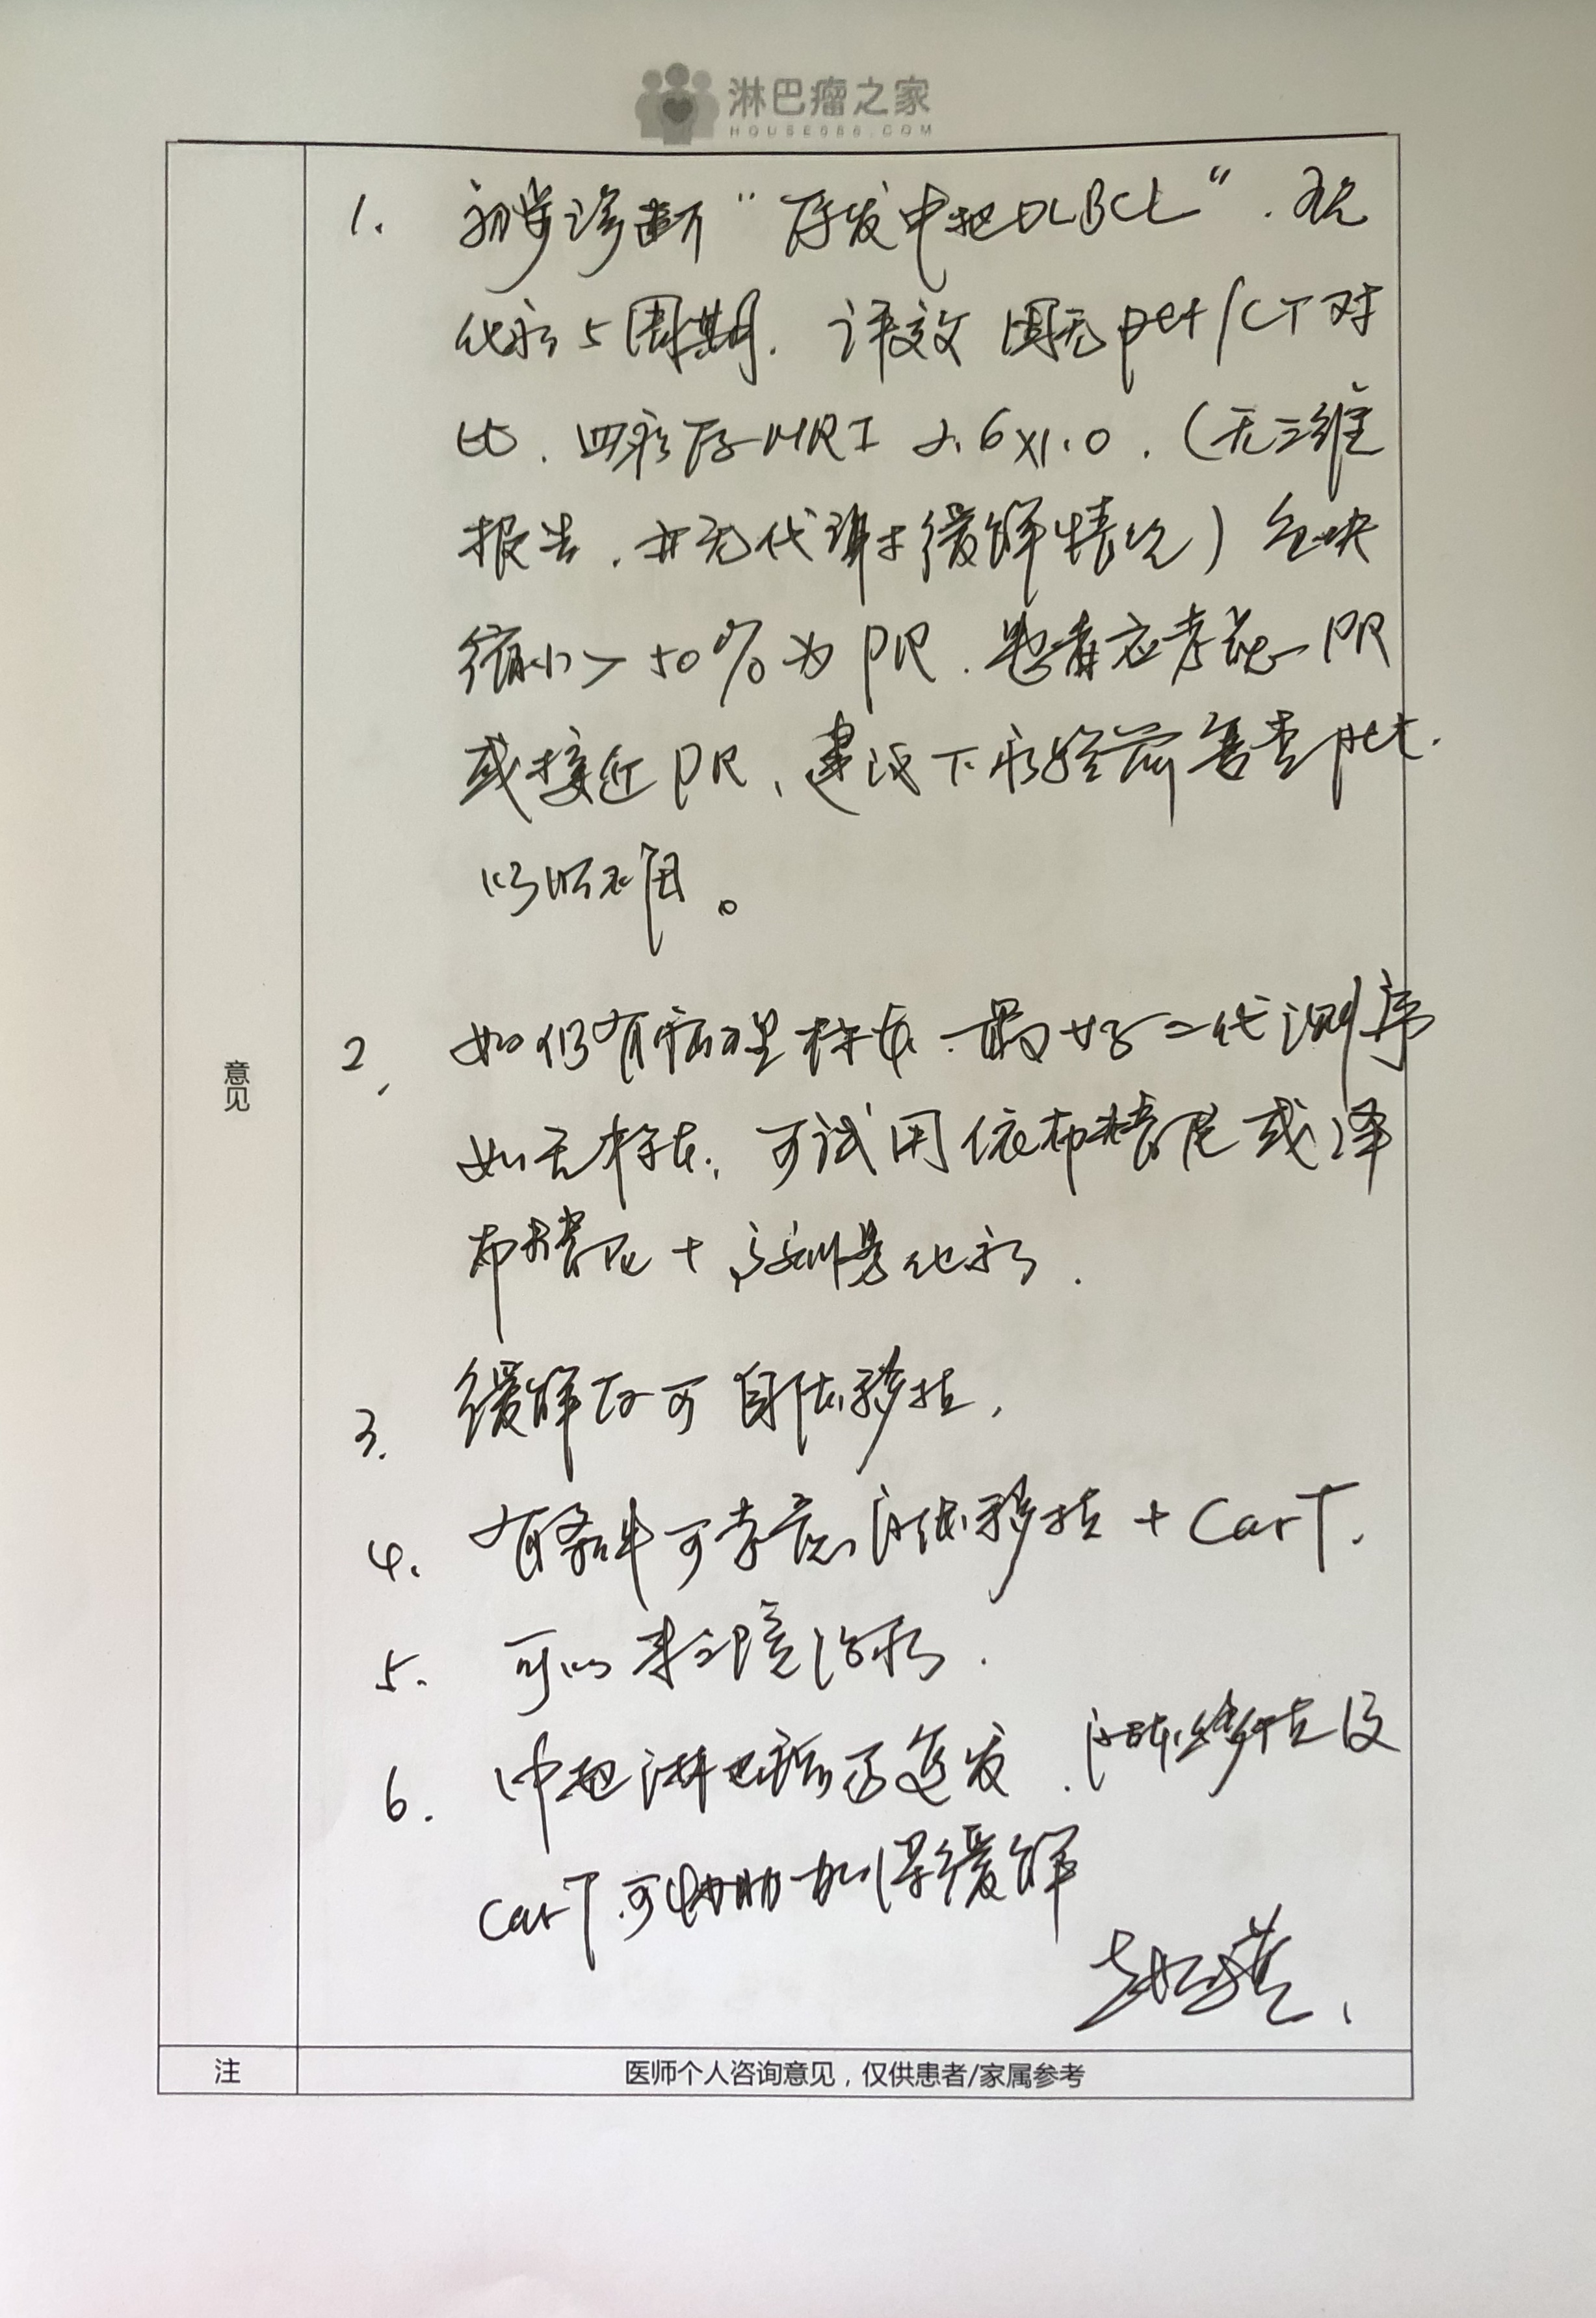 淋巴瘤之家
HOUSE086.COM
1. 初步诊断“原发中枢DLBCL”. 现
化疗5周期. 评效 因无pet/CT对
比. 四疗后MRI 2.6×1.0.(无三维
报告.亦无代谢缓解情况)包块
缩小>50%为PR.患者应考虑PR
或接近PR、建议下疗程前复查pet.
以明确。
意见
2、如仍有病理标本.最好二代测序
如无标本.可试用依布替尼或泽
布替尼+高剂量化疗.
3. 缓解后可自体移植.
4. 有条件可考虑自体移植+CarT.
5. 可以来医院治疗.
6. 中枢淋巴瘤易复发.自体移植及
CarT.可协助加深缓解
注
医师个人咨询意见，仅供患者/家属参考